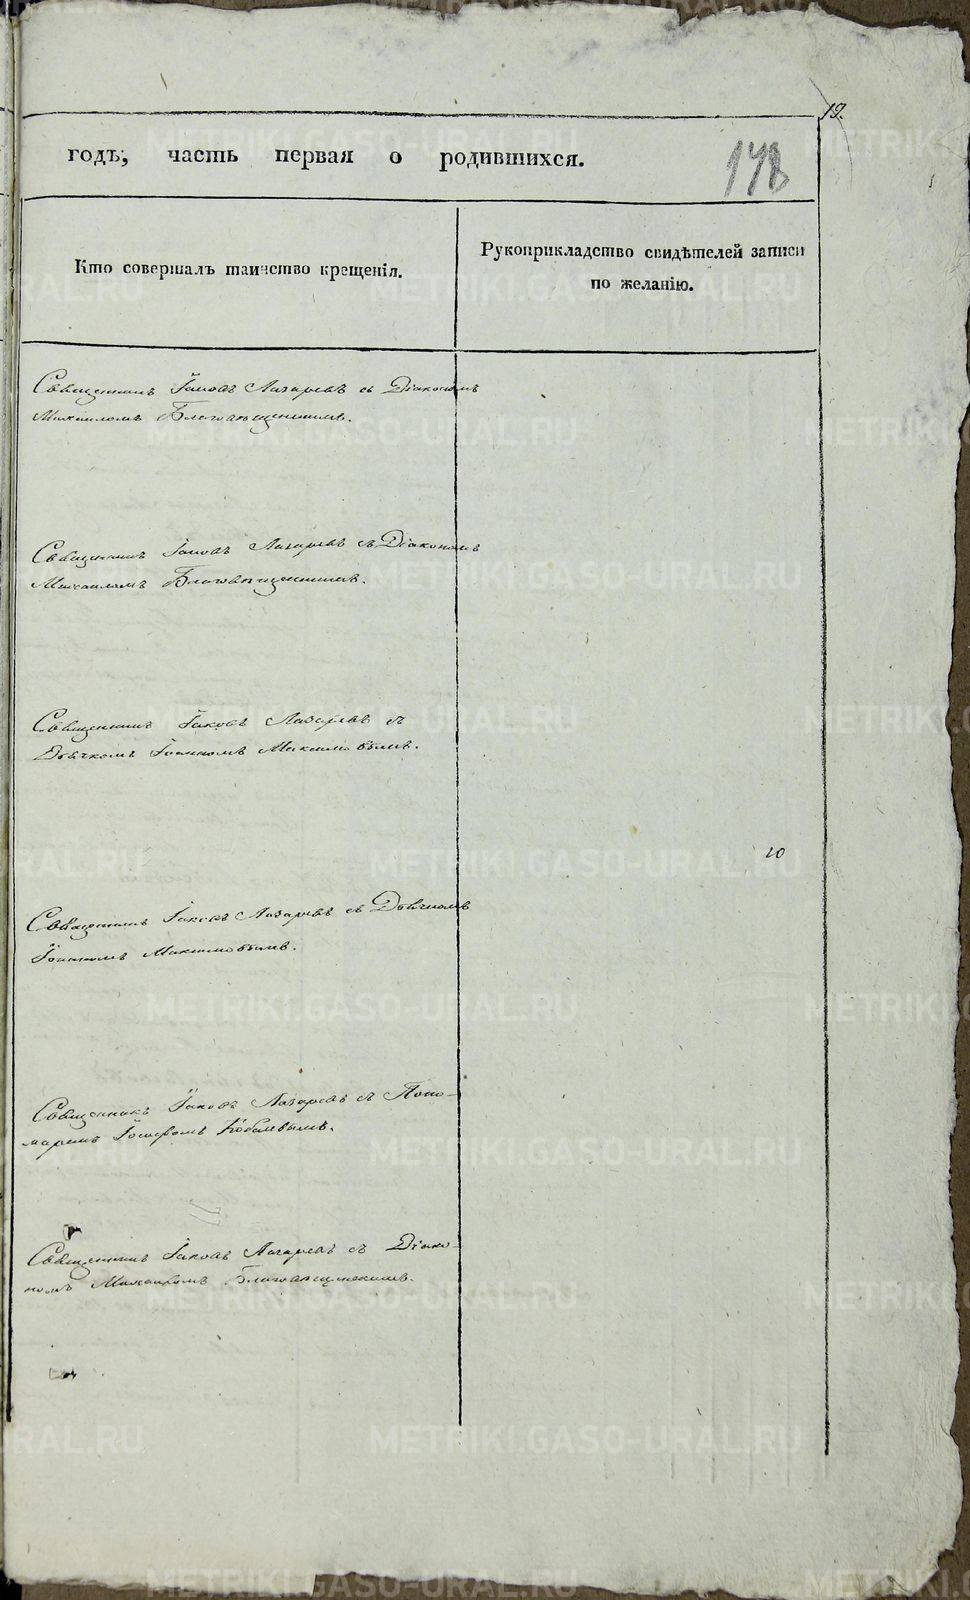 19.
годъ, часть первая о родившихся.
178
Кто совершалъ таинство крещенія.
Рукоприкладство свидѣтелей записи
по желанію.
Священникъ Іаковъ Лазаревъ съ Діакономъ
Михаиломъ Благовѣщенскимъ.
Священникъ Іаковъ Лазаревъ съ Діакономъ
Михаиломъ Благовѣщенскимъ.
Священникъ Іаковъ Лазаревъ съ
Дьячкомъ Іоанномъ Максимовымъ.
20
Священникъ Іаковъ Лазаревъ съ Дьячкомъ
Іоанномъ Максимовымъ.
Священникъ Іаковъ Лазаревъ съ Поно-
маремъ Іосифомъ
Священникъ Іаковъ Лазаревъ съ Діако-
номъ Михаиломъ Благовѣщенскимъ.
METRIKI.GASO-URAL.RU